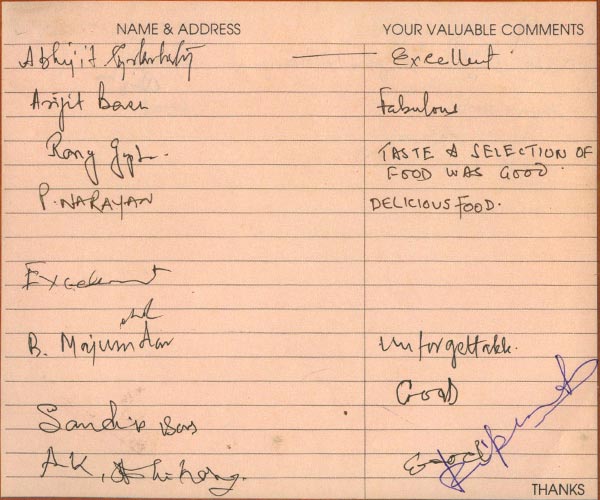 NAME & ADDRESS YOUR VALUABLE COMMENTS
Abhijit Excellent
Arijit Basu Fabulous
Rang Gupta. TASTE & SELECTION OF
FOOD WAS GOOD.
P. NARAYAN DELICIOUS FOOD.
Excellent
B. Majumdar Unforgettable.
Good
Sandip Das
A.K. Good
THANKS